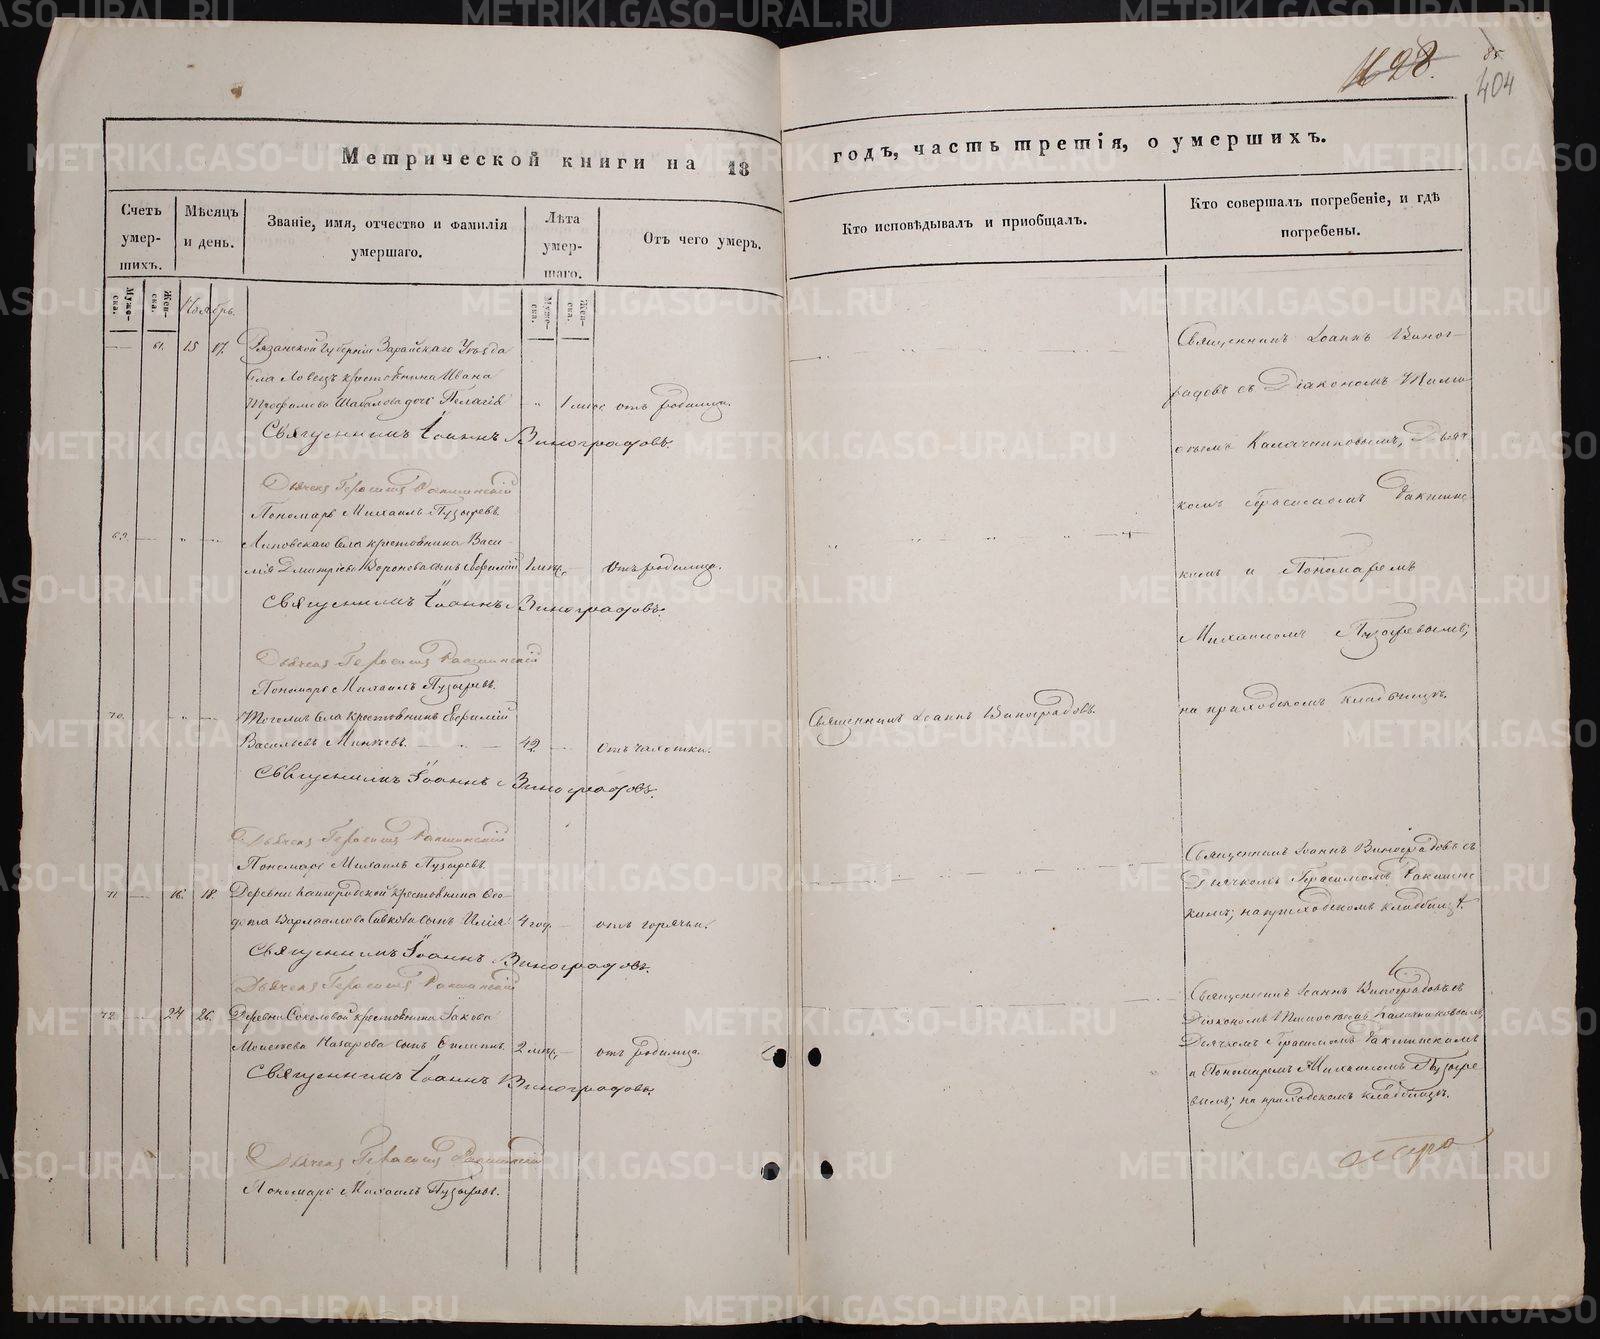 428.
85
404
Метрической книги на 18 годъ, часть третія, о умершихъ.
Счетъ умер-шихъ.
Мѣсяцъ и день.
Званіе, имя, отчество и фамилія умершаго.
Лѣта умер-шаго.
Отъ чего умеръ.
Кто исповѣдывалъ и пріобщалъ.
Кто совершалъ погребеніе, и гдѣ погребены.
Муже-ска.
Жен-ска.
Муже-ска.
Жен-ска.
Ноябрь.
61. 15 17. Рязанской Губерніи Зарайскаго Уѣзда
села Ловецъ крестьянина Ивана
Трофимова Шабалова дочь Пелагія 1 мѣс. отъ родимца.
Священникъ Іоаннъ Виноградовъ.
Дьячекъ Герасимъ
Пономарь Михаилъ Пузыревъ.
69. Липовскаго села крестьянина Васи-
лія Дмитріева Воронова сынъ отъ родимца.
Священникъ Іоаннъ Виноградовъ.
Дьячекъ Герасимъ
Пономарь Михаилъ Пузыревъ.
70. Тогожъ села крестьянинъ Евфимій
Васильевъ 42 отъ чахотки.
Священникъ Іоаннъ Виноградовъ.
Дьячекъ Герасимъ
Пономарь Михаилъ Пузыревъ.
71 16. 18. Деревни крестьянина Ѳео-
Варлаамова сынъ Илія 4 год. отъ горячки.
Священникъ Іоаннъ Виноградовъ.
Дьячекъ Герасимъ
72. 24 26. Деревни Соколовой крестьянина Іакова
Моисеева Назарова сынъ Филиппъ 2 мѣс. отъ родимца.
Священникъ Іоаннъ Виноградовъ.
Дьячекъ Герасимъ
Пономарь Михаилъ Пузыревъ.
Священникъ Іоаннъ Виноградовъ.
Священникъ Іоаннъ Виног-
радовъ съ Діакономъ Тимо-
ѳеемъ Калачниковымъ, Дьяч-
комъ Герасимомъ
кимъ и Пономаремъ
Михаиломъ Пузыревымъ;
на приходскомъ кладбищѣ.
Священникъ Іоаннъ Виноградовъ съ
Дьячкомъ Герасимомъ
кимъ; на приходскомъ кладбищѣ.
Священникъ Іоаннъ Виноградовъ съ
Діакономъ Тимоѳеемъ Калачниковымъ,
Дьячкомъ Герасимомъ
и Пономаремъ Михаиломъ Пузыре-
вымъ; на приходскомъ кладбищѣ.
METRIKI.GASO-URAL.RU